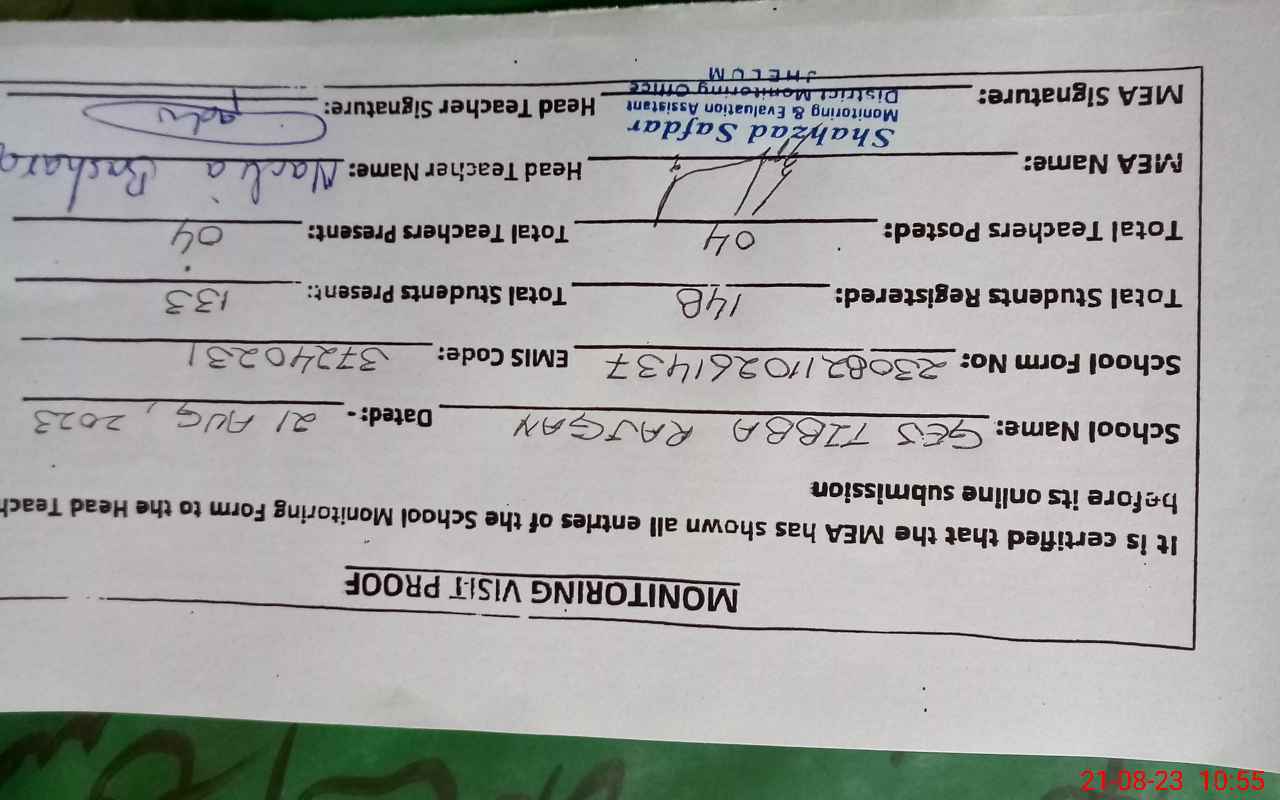 MONITORING VISIT PROOF
It is certified that the MEA has shown all entries of the School Monitoring Form to the Head Teach
before its online submission
School Name: GES TIBBA RAJGAN Dated:- 21 AUG, 2023
School Form No: 23082110261437 EMIS Code: 37240231
Total Students Registered: 148 Total Students Present: 133
Total Teachers Posted: 04 Total Teachers Present: 04
MEA Name: Head Teacher Name: Nadia Bashara
Shahzad Safdar
Monitoring & Evaluation Assistant
District Monitoring Office
JHELUM
MEA Signature: Head Teacher Signature:
21-08-23 10:55